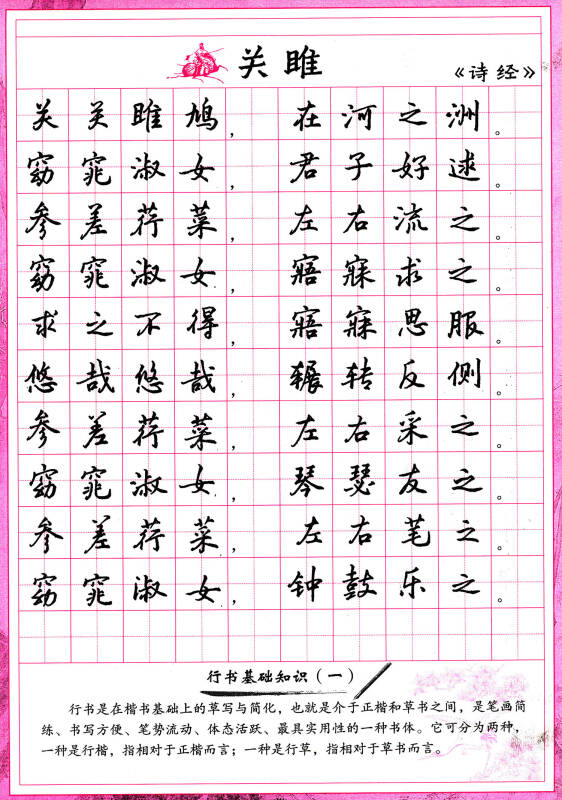 关雎
《诗经》
关关雎鸠，在河之洲。
窈窕淑女，君子好逑。
参差荇菜，左右流之。
窈窕淑女，寤寐求之。
求之不得，寤寐思服。
悠哉悠哉，辗转反侧。
参差荇菜，左右采之。
窈窕淑女，琴瑟友之。
参差荇菜，左右芼之。
窈窕淑女，钟鼓乐之。
行书基础知识（一）
行书是在楷书基础上的草写与简化，也就是介于正楷和草书之间，是笔画简
练、书写方便、笔势流动、体态活跃、最具实用性的一种书体。它可分为两种，
一种是行楷，指相对于正楷而言；一种是行草，指相对于草书而言。